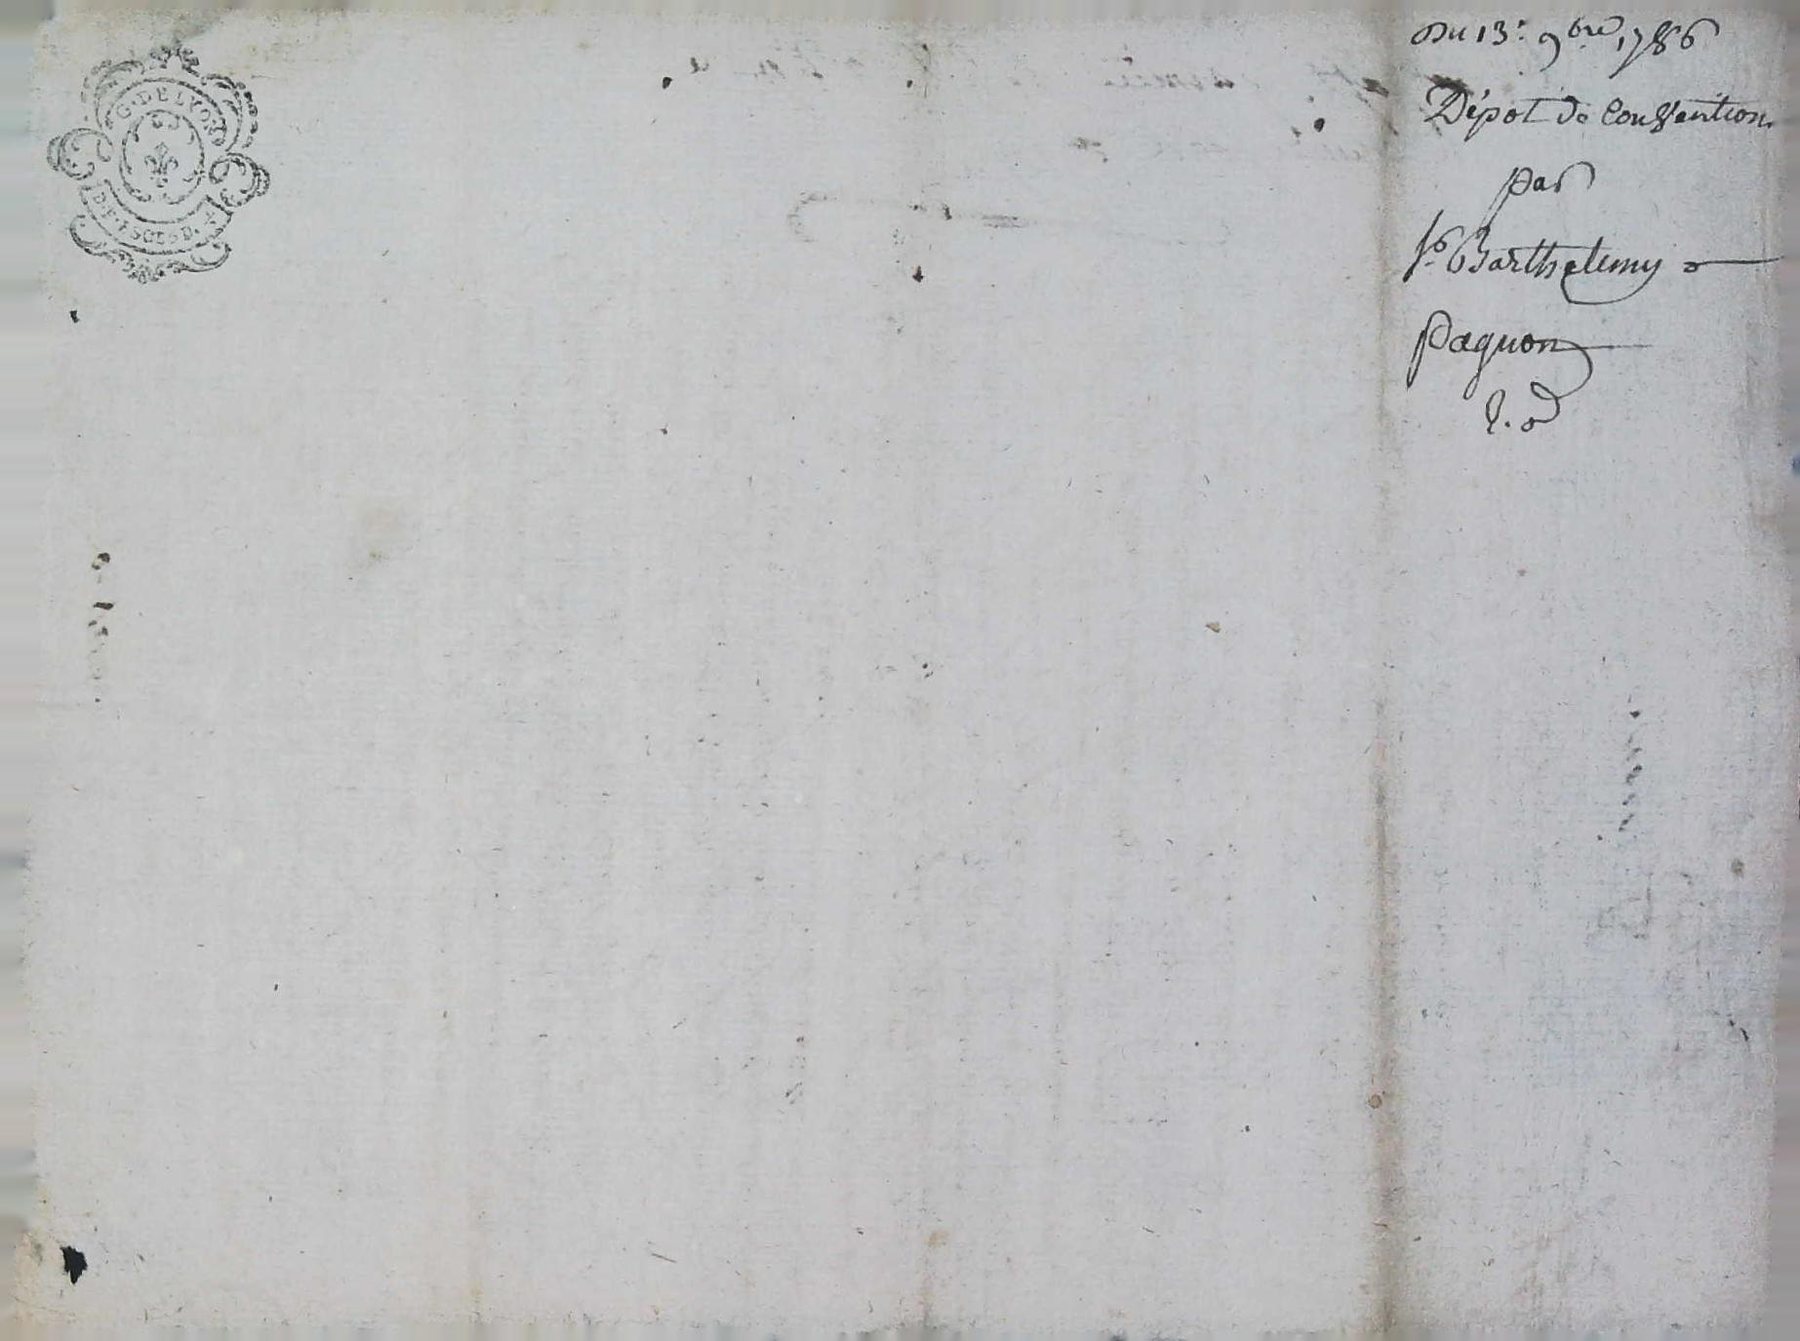 G. DE LYON
Du 13. 9bre 1786
Dépot de Convention
par
Sr Barthelemy
Paquon